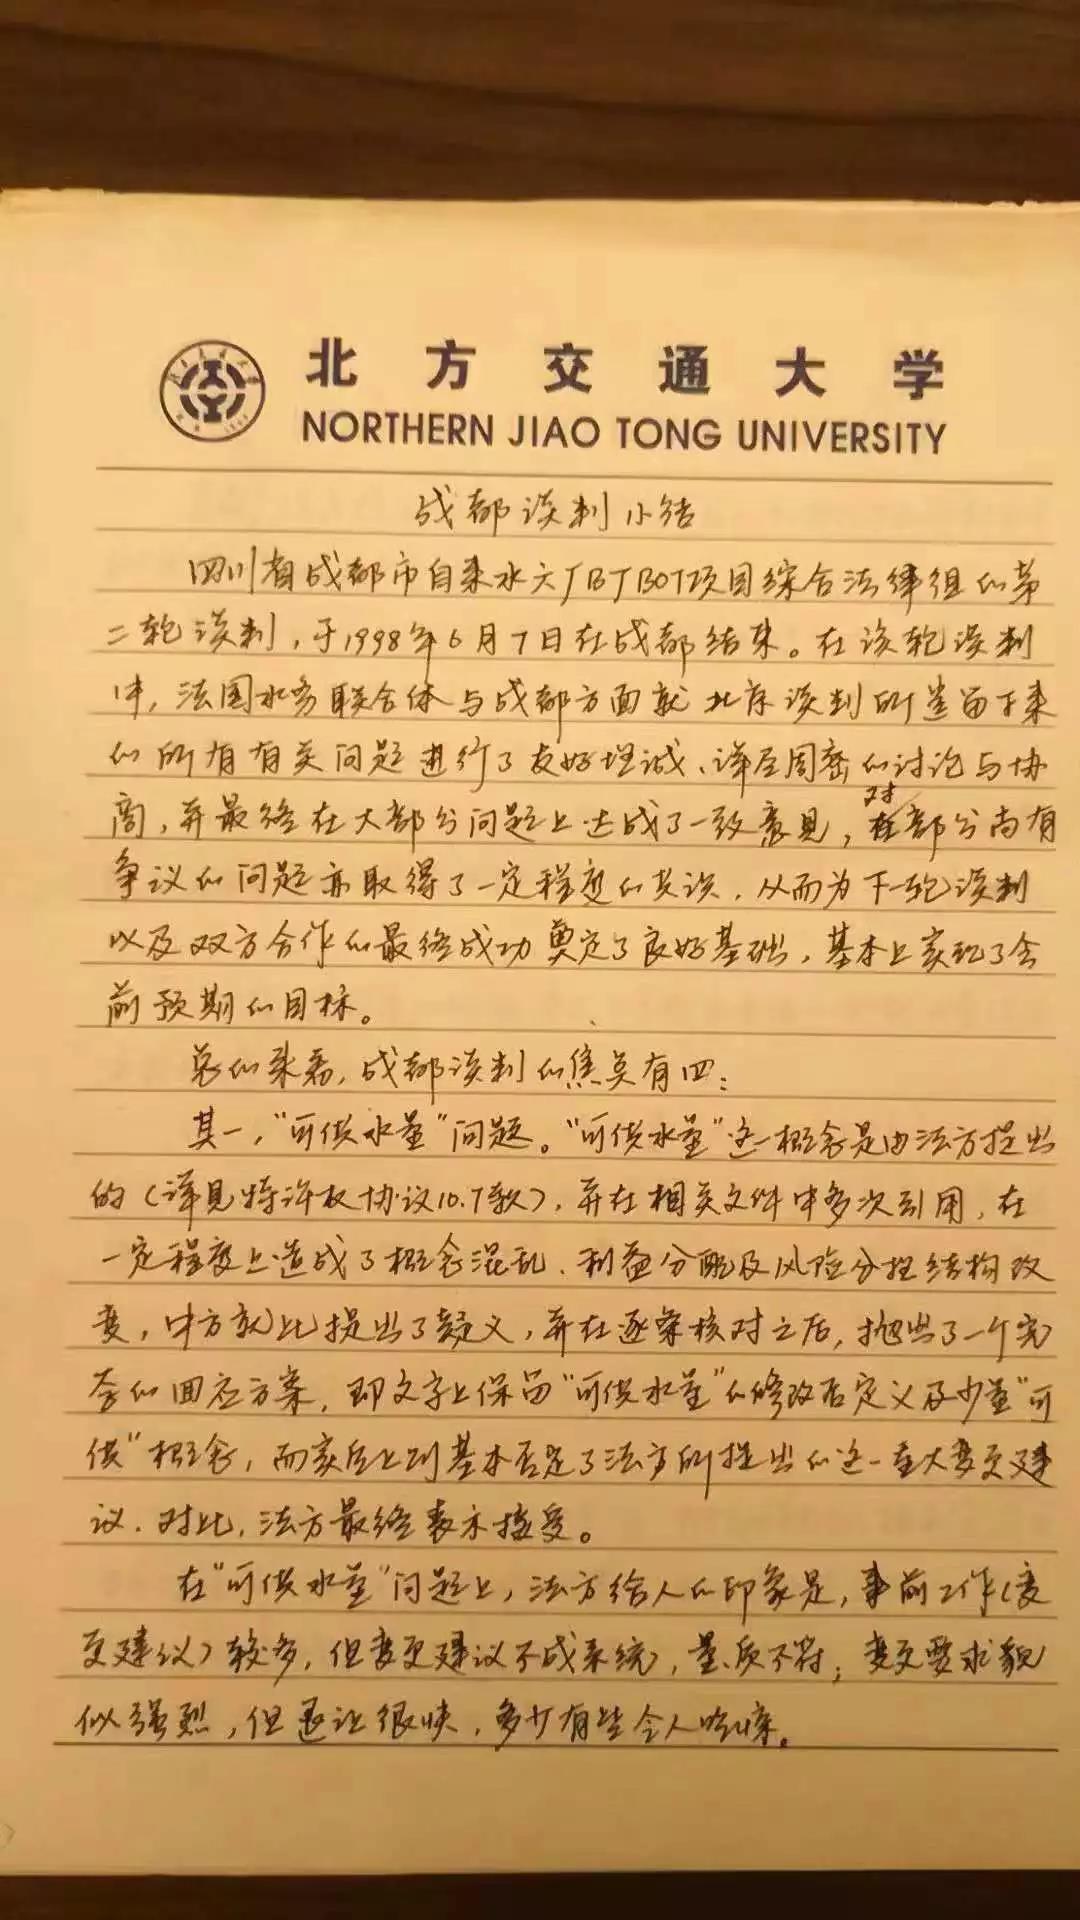 北方交通大学
NORTHERN JIAO TONG UNIVERSITY
成都谈判小结
四川省成都市自来水六厂B厂BOT项目综合法律组的第
二轮谈判，于1998年6月7日在成都结束。在该轮谈判
中，法国水务联合体与成都方面就北京谈判所遗留下来
的所有有关问题进行了友好坦诚、详尽周密的讨论与协
商，并最终在大部分问题上达成了一致意见，对部分尚有
争议的问题亦取得了一定程度的共识，从而为下一轮谈判
以及双方合作的最终成功奠定了良好基础，基本上实现了会
前预期的目标。
总的来看，成都谈判的焦点有四：
其一，“可供水量”问题。“可供水量”这一概念是由法方提出
的（详见特许权协议10.7款），并在相关文件中多次引用，在
一定程度上造成了概念混乱、利益分配及风险分担结构改
变，中方就此提出了疑义，并在逐案核对之后，抛出了一个完
整的回应方案，即文字上保留“可供水量”的修改后定义及少量“可
供”概念，而实质上则基本否定了法方所提出的这一重大变更建
议．对此，法方最终表示接受。
在“可供水量”问题上，法方给人的印象是，事前工作（变
更建议）较多，但变更建议不成系统，量、质不符；变更要求貌
似强烈，但退让很快，多少有些令人吃惊。